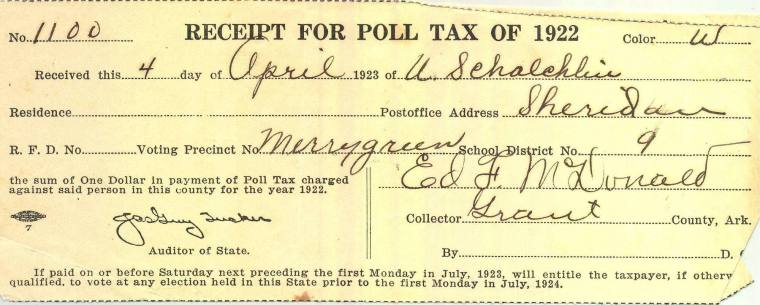 No. 1100 RECEIPT FOR POLL TAX OF 1922 Color W
Received this 4 day of April 1923 of U. Schalchlin
Residence Postoffice Address Sheridan
R. F. D. No. Voting Precinct No Merrygreen School District No. 9
the sum of One Dollar in payment of Poll Tax charged
against said person in this county for the year 1922.
Ed F. McDonald
7 Jas Guy Tucker Collector Grant County, Ark.
Auditor of State. By D. C
If paid on or before Saturday next preceding the first Monday in July, 1923, will entitle the taxpayer, if otherw
qualified, to vote at any election held in this State prior to the first Monday in July, 1924.